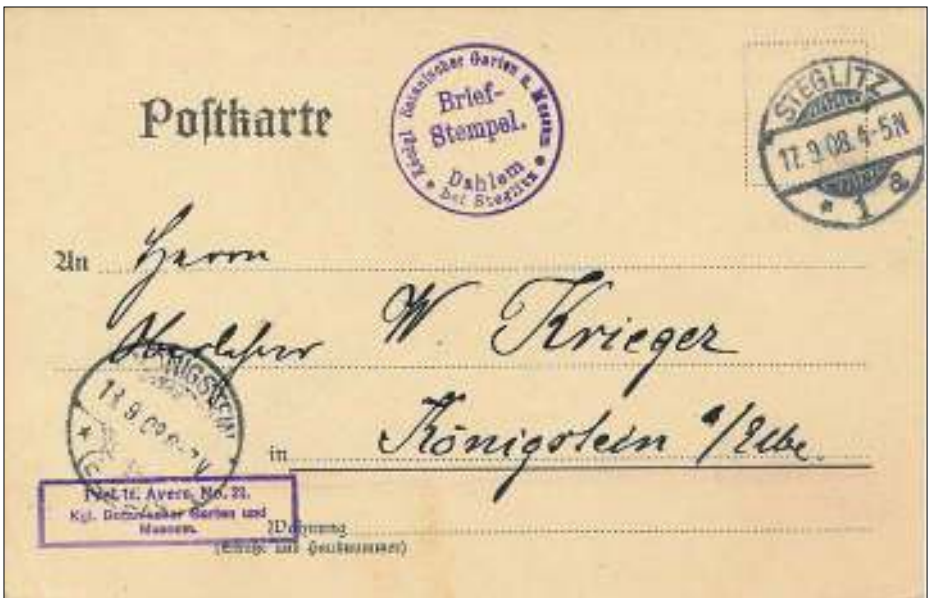 Postkarte
Königl. Botanischer Garten u. Museum
Brief-
Stempel.
Dahlem
bei Steglitz
STEGLITZ
17.9.08.4-5N
* 1 a
An Herrn
Oberlehrer W. Krieger
in Königstein a/Elbe.
KÖNIGSTEIN
Frei lt. Avers. No. 21.
Kgl. Botanischer Garten und
Museum.
Wohnung
(Straße und Hausnummer)